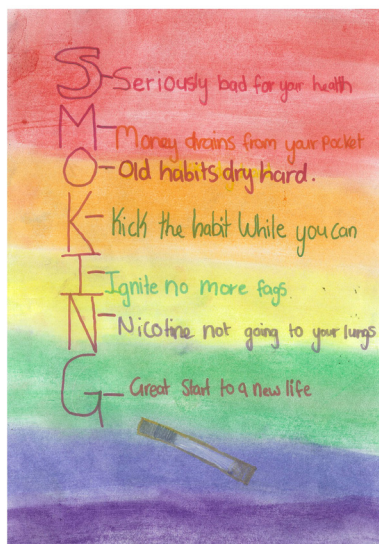 S-Seriously bad for your health
M-Money drains from your pocket
O-Old habits dry hard.
K-Kick the habit While you can
I-Ignite no more fags
N-Nicotine not going to your lungs
G-Great Start to a new life